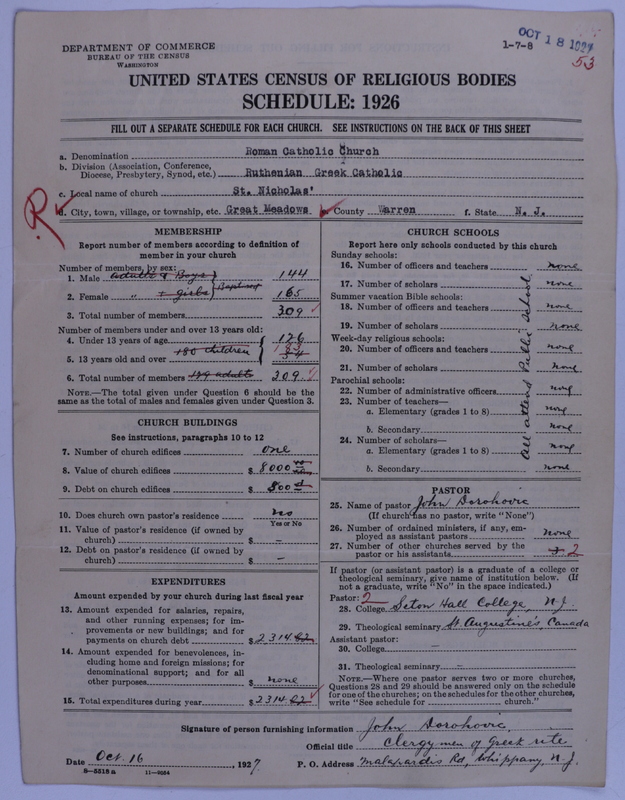 DEPARTMENT OF COMMERCE
BUREAU OF THE CENSUS
WASHINGTON
1-7-8
OCT 18 1927
53
UNITED STATES CENSUS OF RELIGIOUS BODIES
SCHEDULE: 1926
FILL OUT A SEPARATE SCHEDULE FOR EACH CHURCH. SEE INSTRUCTIONS ON THE BACK OF THIS SHEET
a. Denomination Roman Catholic Church
b. Division (Association, Conference, Diocese, Presbytery, Synod, etc.) Ruthenian Greek Catholic
c. Local name of church St. Nicholas'
R
d. City, town, village, or township, etc. Great Meadows County Warren f. State N. J.
MEMBERSHIP
Report number of members according to definition of
member in your church
Number of members, by sex:
1. Male Adults & Boys 144
2. Female " + girls Baptised 165
3. Total number of members 309
Number of members under and over 13 years old:
4. Under 13 years of age 126
5. 13 years old and over 180 children 183
6. Total number of members 129 adults 309
NOTE.—The total given under Question 6 should be
same as the total of males and females given under Question 3.
CHURCH BUILDINGS
See instructions, paragraphs 10 to 12
7. Number of church edifices one
8. Value of church edifices $ 8000
9. Debt on church edifices $ 800
10. Does church own pastor's residence no
Yes or No
11. Value of pastor's residence (if owned by
church) $ —
12. Debt on pastor's residence (if owned by
church) $ —
EXPENDITURES
Amount expended by your church during last fiscal year
13. Amount expended for salaries, repairs,
and other running expenses; for im-
provements or new buildings; and for
payments on church debt $ 2314.82
14. Amount expended for benevolences, in-
cluding home and foreign missions; for
denominational support; and for all
other purposes $ none
15. Total expenditures during year $ 2314.82
CHURCH SCHOOLS
Report here only schools conducted by this church
Sunday schools:
16. Number of officers and teachers none
17. Number of scholars none
Summer vacation Bible schools:
18. Number of officers and teachers none
19. Number of scholars none
Week-day religious schools:
20. Number of officers and teachers none
21. Number of scholars none
Parochial schools:
22. Number of administrative officers none
23. Number of teachers—
a. Elementary (grades 1 to 8) none
b. Secondary none
24. Number of scholars—
a. Elementary (grades 1 to 8) none
b. Secondary none
All attend Public School
PASTOR
25. Name of pastor John Dorohovic
(If church has no pastor, write "None")
26. Number of ordained ministers, if any, em-
ployed as assistant pastors none
27. Number of other churches served by the
pastor or his assistants 2
If pastor (or assistant pastor) is a graduate of a college or
theological seminary, give name of institution below. (If
not a graduate, write "No" in the space indicated.)
Pastor: 2
28. College Seton Hall College, N.J.
29. Theological seminary St Augustine's, Canada
Assistant pastor:
30. College —
31. Theological seminary —
NOTE.—Where one pastor serves two or more churches,
Questions 28 and 29 should be answered only on the schedule
for one of the churches; on the schedules for the other churches,
write "See schedule for church."
Signature of person furnishing information John Dorohovic
Official title Clergymen of Greek rite
Date Oct. 16, 1927. P. O. Address Malapardis Rd, Whippany, N.J.
8-5518a 11-9054